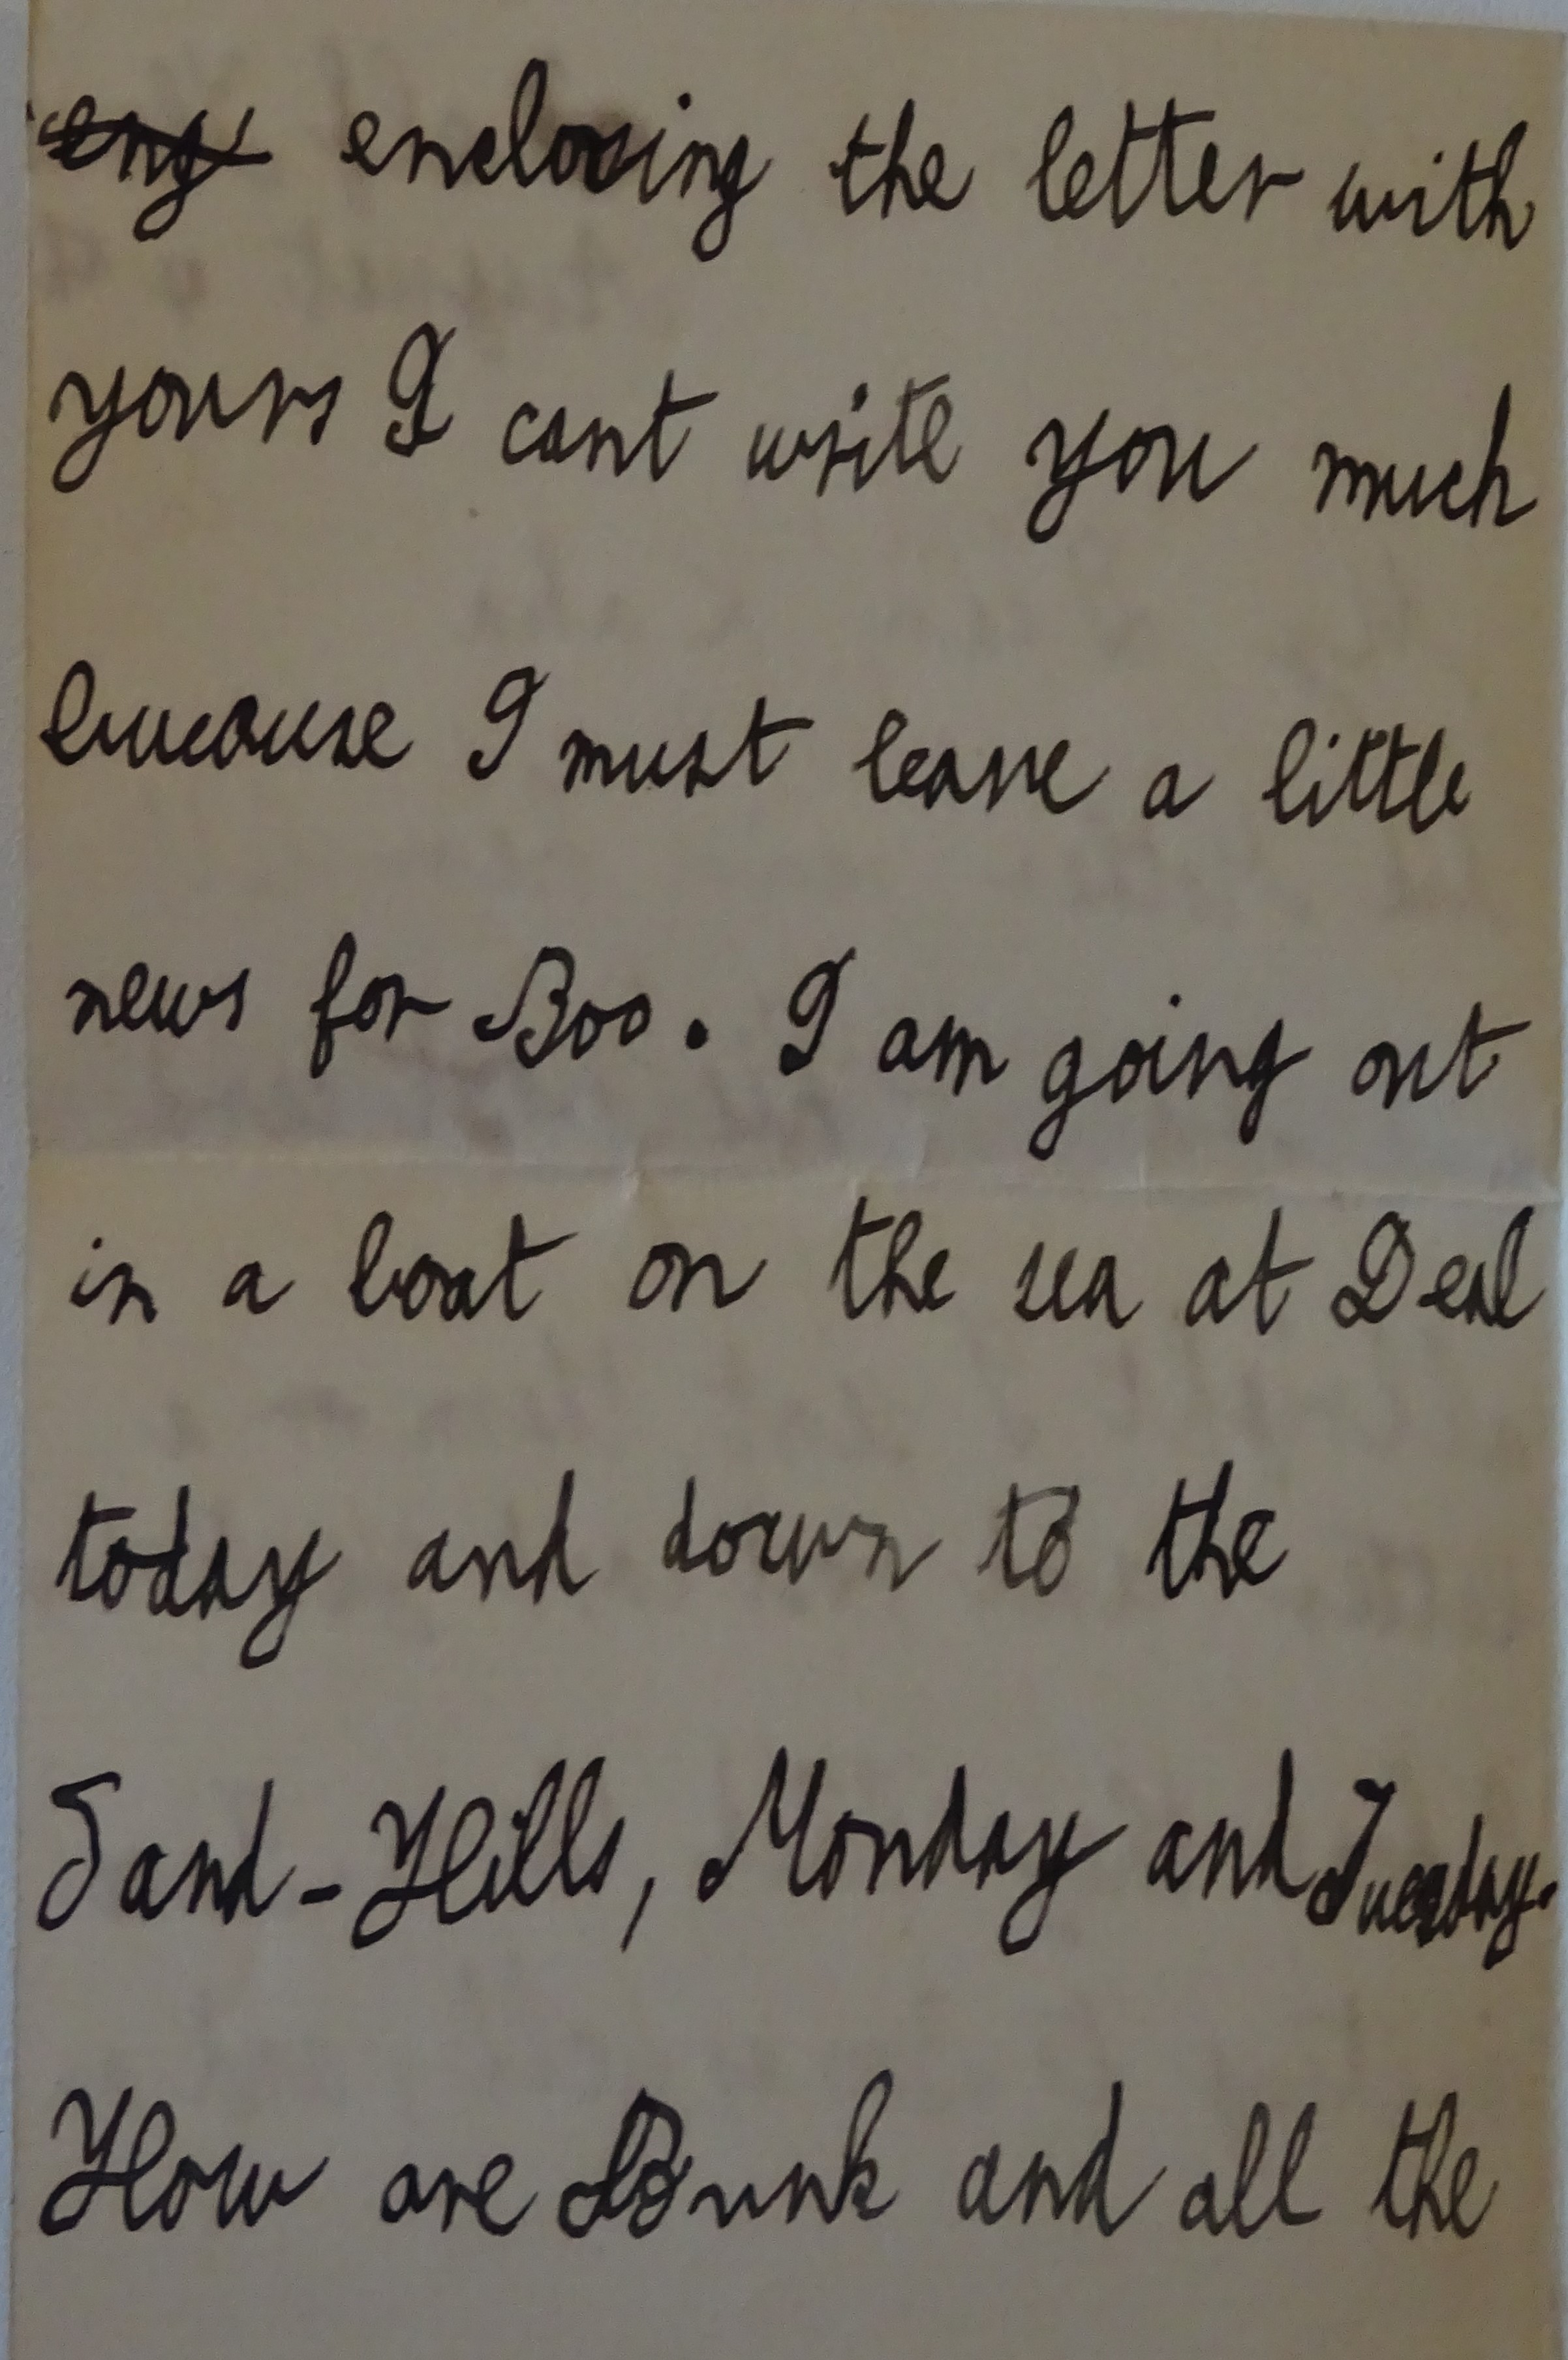 eng enclosing the letter with
yours I cant write you much
beucause I must leave a little
news for Boo. I am going out
in a boat on the sea at Deal
today and down to the
Sand-Hills, Monday and Tuesday.
How are and all the